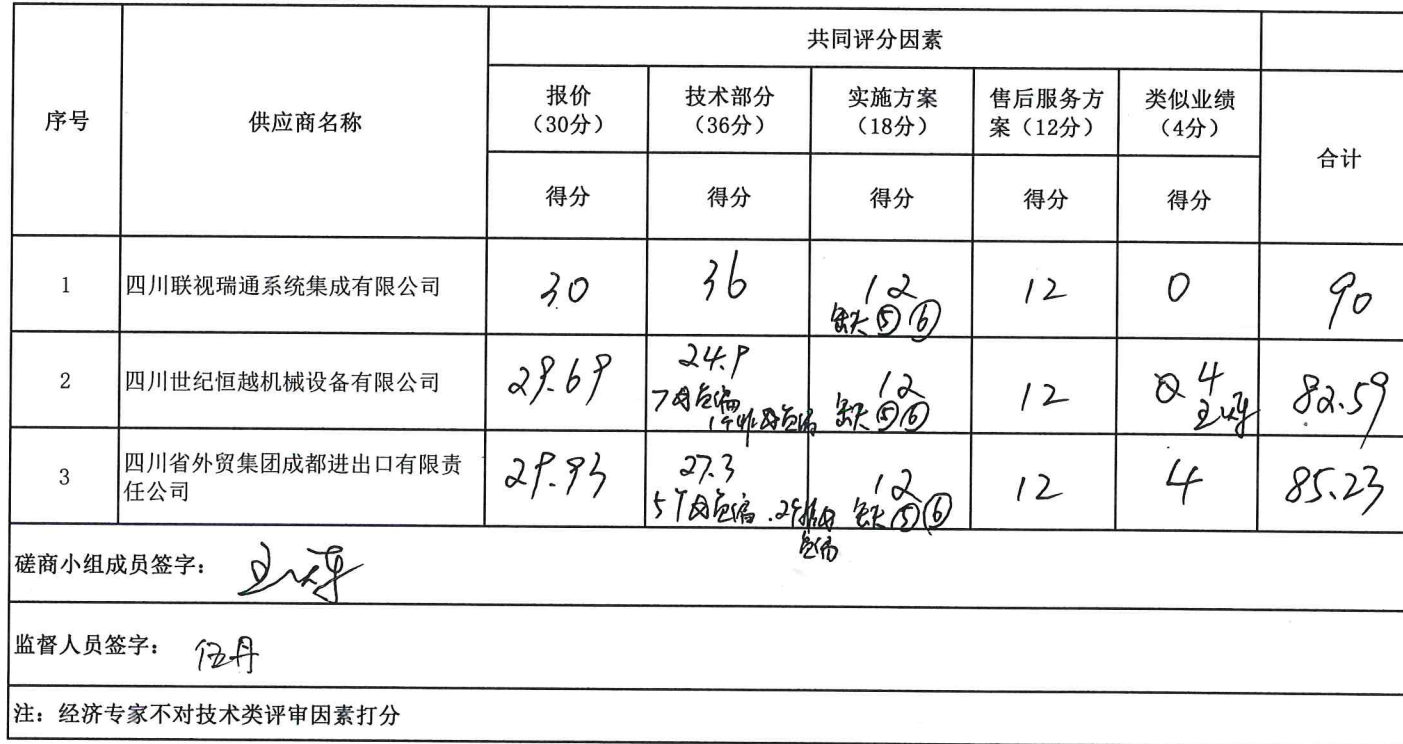 共同评分因素
序号
供应商名称
报价
（30分）
技术部分
（36分）
实施方案
（18分）
售后服务方
案（12分）
类似业绩
（4分）
合计
得分
得分
得分
得分
得分
1
四川联视瑞通系统集成有限公司
30
36
12
缺⑤⑥
12
0
90
2
四川世纪恒越机械设备有限公司
29.69
24.9
12
缺⑤⑥
12
4
82.59
3
四川省外贸集团成都进出口有限责
任公司
29.93
27.3
12
缺⑤⑥
12
4
85.23
磋商小组成员签字：
监督人员签字： 伍丹
注：经济专家不对技术类评审因素打分